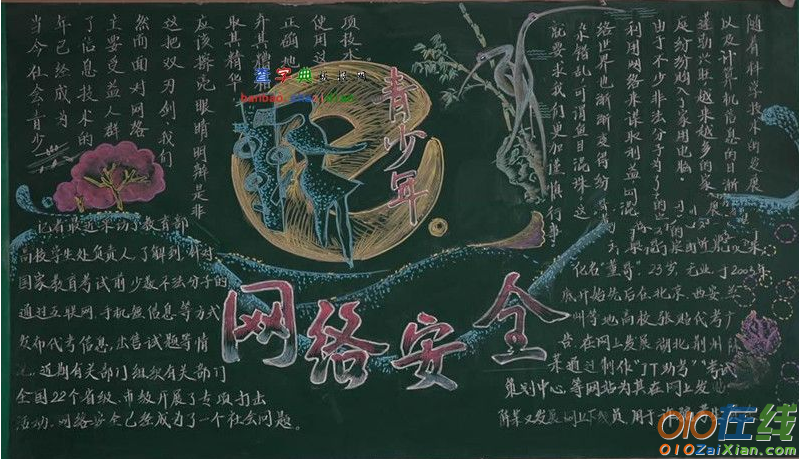 当今社会青少
年已经成为
了信息技术的
主要受益人群
然而面对网络
这把双刃剑,我们
应该擦亮眼睛明辨是非
取其精华
弃其糟粕
正确地
使用这
项技
青少年
网络安全
随着科学技术的发展
以及计算机信息的日渐
蓬勃兴旺,越来越多的家
庭纷纷购入家用电脑。
由于不少非法分子为了
利用网络来谋取利益,网
络世界也渐渐变得纷
杂错乱,可谓鱼目混珠,这
就要求我们更加谨慎行事
记者最近采访了教育部
高校学生处负责人了解到,针对
国家教育考试前少数不法分子的
通过互联网、手机短信息等方式
发布代考信息,出售试题等情
近期有关部门组织有关部门
全国22个省级、市级开展了专项打击
活动。网络安全已经成为了一个社会问题。
化名"董哥" 23岁,无业于2003年
底开始先后在北京、西安、兰
州等地高校张贴代考广
告,在网上发展湖北荆州
某通过制作"JT助考""考试
策划中心"等网站为其在网上发
展下线人员,用于
010在线
010ZaiXian.com